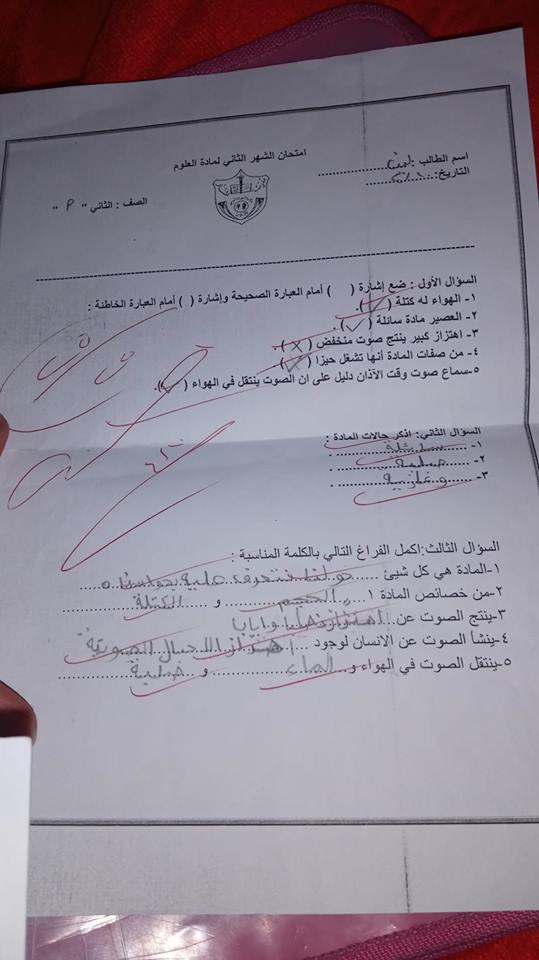 امتحان الشهر الثاني لمادة العلوم
اسم الطالب :
التاريخ:
الصف : الثاني " م "
السؤال الأول : ضع إشارة ( ) أمام العبارة الصحيحة وإشارة ( ) أمام العبارة الخاطئة :
١- الهواء له كتلة ( ✓ ).
٢- العصير مادة سائلة ( ✓ ).
٣- اهتزاز كبير ينتج صوت منخفض ( X ).
٤- من صفات المادة أنها تشغل حيزا ( ✓ ).
٥-سماع صوت وقت الآذان دليل على ان الصوت ينتقل في الهواء ( ✓ ).
السؤال الثاني: اذكر حالات المادة :
١- سائلة
٢- صلبة
٣- وغازية
السؤال الثالث:اكمل الفراغ التالي بالكلمة المناسبة :
١-المادة هي كل شيئ حولنا نتعرف عليه بحواسنا ٥
٢-من خصائص المادة ١ الحجم و الكتلة
٣-ينتج الصوت عن اهتزاز ذهابا وايابا
٤-ينشأ الصوت عن الانسان لوجود اهتزاز الاحبال الصوتية
٥-ينتقل الصوت في الهواء و الماء و صلبة